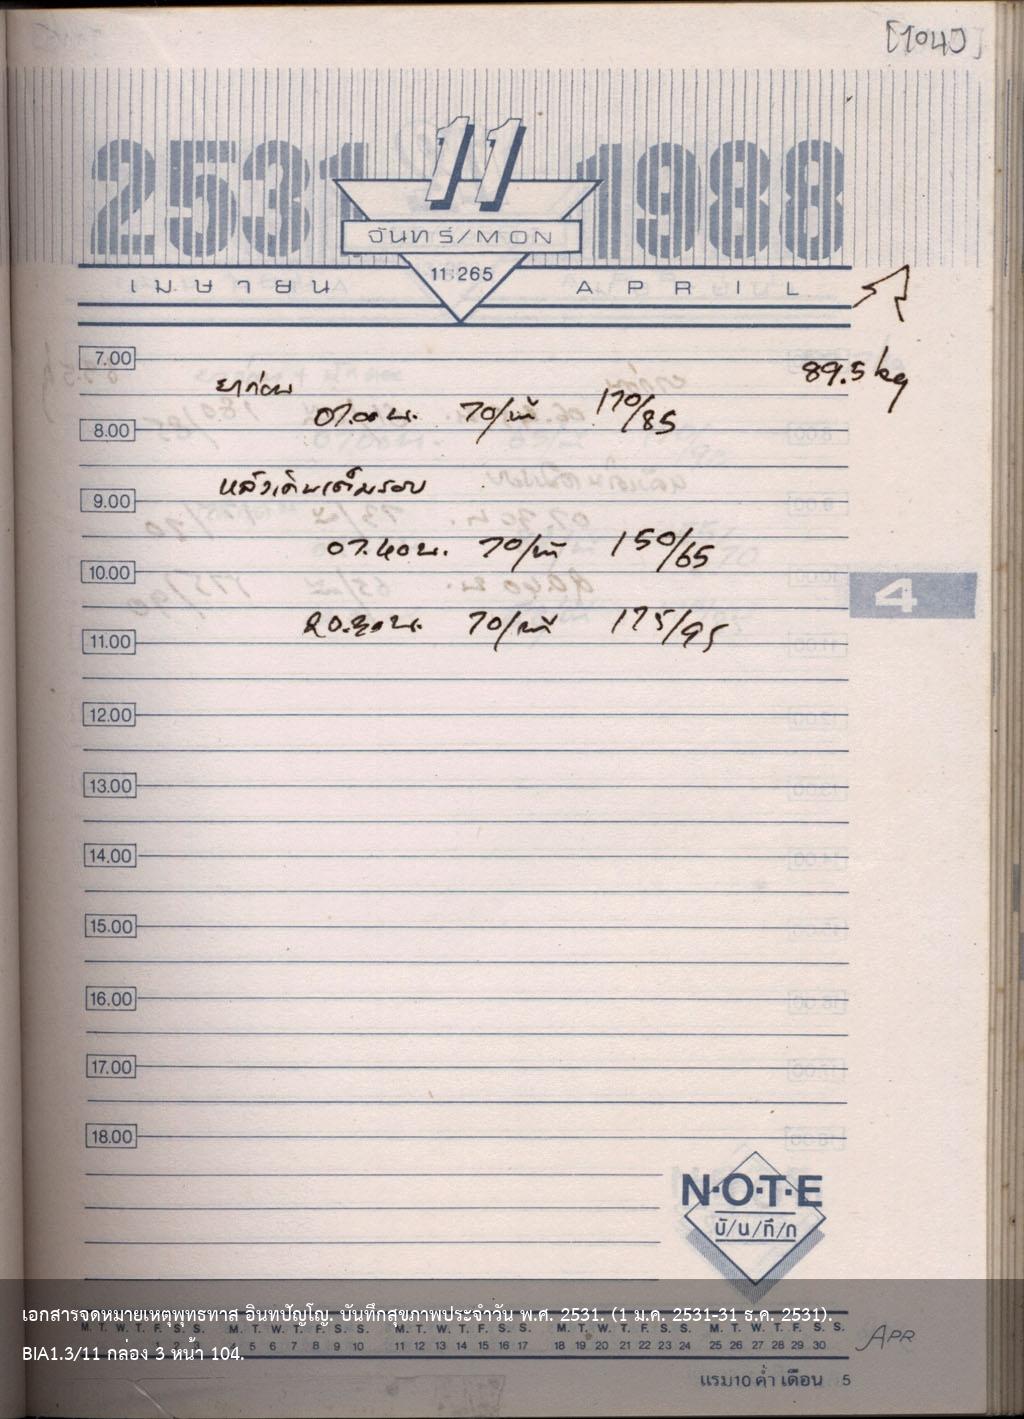 [104]
2531 11 1988
จันทร์/MON
11:265
เมษายน APRIL
7.00
89.5 kg
ยาก่อน
07.00 น. 70/นที 170/85
8.00
หลังเดินเต็มรอบ
9.00
07.40 น. 70/นที 150/65
10.00
4
20.30 น. 70/นที 175/95
11.00
12.00
13.00
14.00
15.00
16.00
17.00
18.00
N·O·T·E
บั/น/ทึ/ก
เอกสารจดหมายเหตุพุทธทาส อินทปัญโญ. บันทึกสุขภาพประจำวัน พ.ศ. 2531. (1 ม.ค. 2531-31 ธ.ค. 2531).
M. T. W. T. F. S. S. M. T. W. T. F. S. S. M. T. W. T. F. S. S. M. T. W. T. F. S. S. M. T. W. T. F. S. S.
1 2 3 4 5 6 7 8 9 10 11 12 13 14 15 16 17 18 19 20 21 22 23 24 25 26 27 28 29 30
APR
BIA1.3/11 กล่อง 3 หน้า 104.
แรม10 ค่ำ เดือน 5